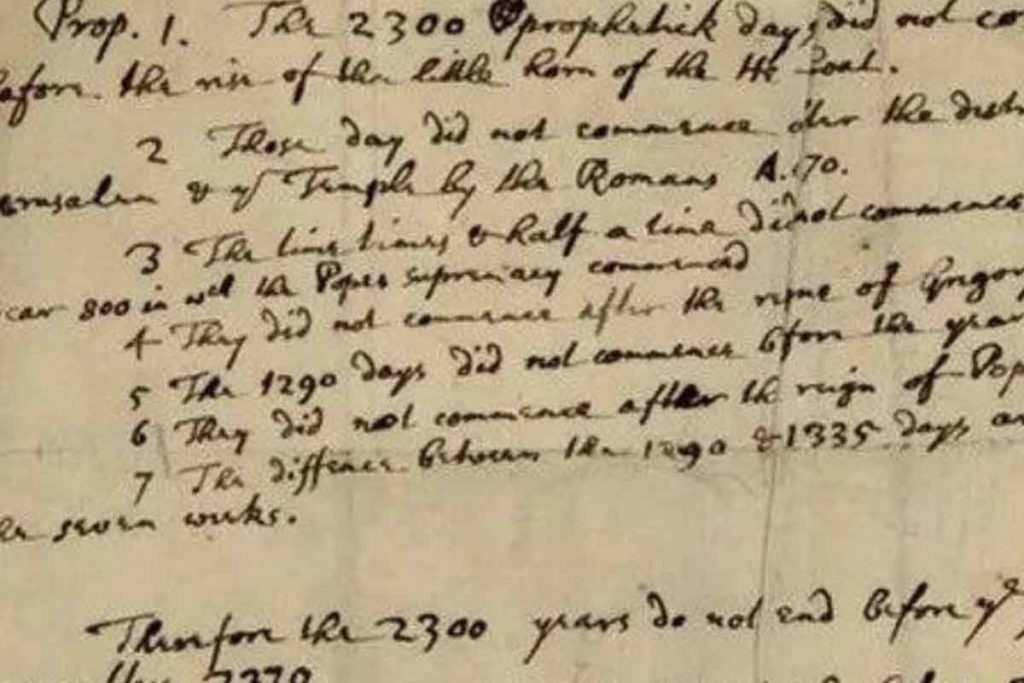 Prop. 1. The 2300 prophetick days did not co
before the rise of the little horn of the He Goat.
2 Those day did not commence after the destr
erusalem & ye Temple by the Romans A. 70.
3 The time times & half a time did not commence
year 800 in wch the Popes supremacy commenced
4 They did not commence after the reigne of Gregory
5 The 1290 days did not commence before the year
6 They did not commence after the reign of Pop
7 The diffence between the 1290 & 1335 days ar
he seven weeks.
Therefore the 2300 years do not end before ye
2370